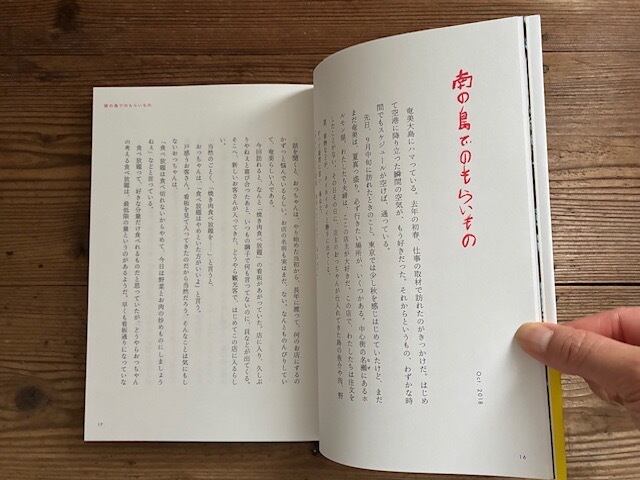 南の島でのもらいもの
Oct 2018
奄美大島にハマっている。去年の初春、仕事の取材で訪れたのがきっかけだ。はじめ
て空港に降り立った瞬間の空気が、もう好きだった。それからというもの、わずかな時
間でもスケジュールが空けば、通っている。
先日、9月の中旬に訪れたときのこと。東京では少し秋を感じはじめていたけど、まだ
まだ奄美は、夏真っ盛り。必ず行きたい場所が、いくつかある。中心街の名瀬にあるホ
ルモン屋。わたしたち夫婦は、ここの店主が大好きだ。この店で、わたしたちは注文を
16
南の島でのもらいもの
話を聞くと、おっちゃんは、やり始めた当初から、長年に渡って、何のお店にするの
かずっと悩んでいるらしく、お店の名前も実はまだ、ない。なんとものんびりしてい
て、奄美らしい人である。
今回訪れると、なんと「焼き肉食べ放題」の看板があがっていた。店に入り、久しぶ
りやねぇと喜び合ったあと、いつもの調子で何も言ってないのに、貝などが出てくる。
そこへ、新しいお客さんが入ってきた。どうやら観光客で、はじめてこの店に入るらし
当然のごとく、「焼き肉食べ放題を……」と言うと、
おっちゃんは、「食べ放題はやめといた方がいいよ」と言う。
戸惑うお客さん。看板を見て入ってきたのだから当然だろう。そんなことは気にもし
ないおっちゃんは、
「食べ放題は食べ切れないからやめて、今日は野菜とお肉の炒めものにしましょう
ねぇ」などと言っている。
食べ放題って、好きな分量だけ食べれるものだと思っていたが、どうやらおっちゃん
の考える食べ放題は、最低限の量というのがあるようだ。早くも看板通りになっていな
17